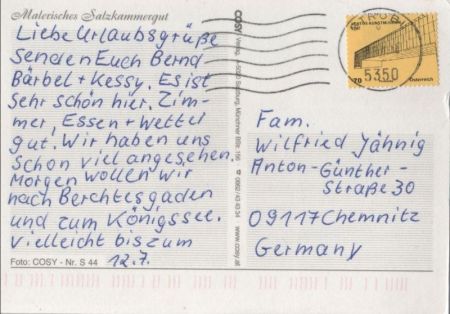 Malerisches Salzkammergut
Liebe Urlaubsgrüße
senden Euch Bernd-
Bärbel + Kessy. Es ist
sehr schön hier. Zim-
mer, Essen + Wetter
gut. Wir haben uns
schon viel angesehen.
Morgen wollen wir
nach Berchtesgaden
und zum Königssee.
Vielleicht bis zum
12.7.
Foto: COSY - Nr. S 44
COSY
www.cosy.at
5350
70
Österreich
Fam.
Wilfried Jähnig
Anton-Günther-
Straße 30
09117 Chemnitz
Germany